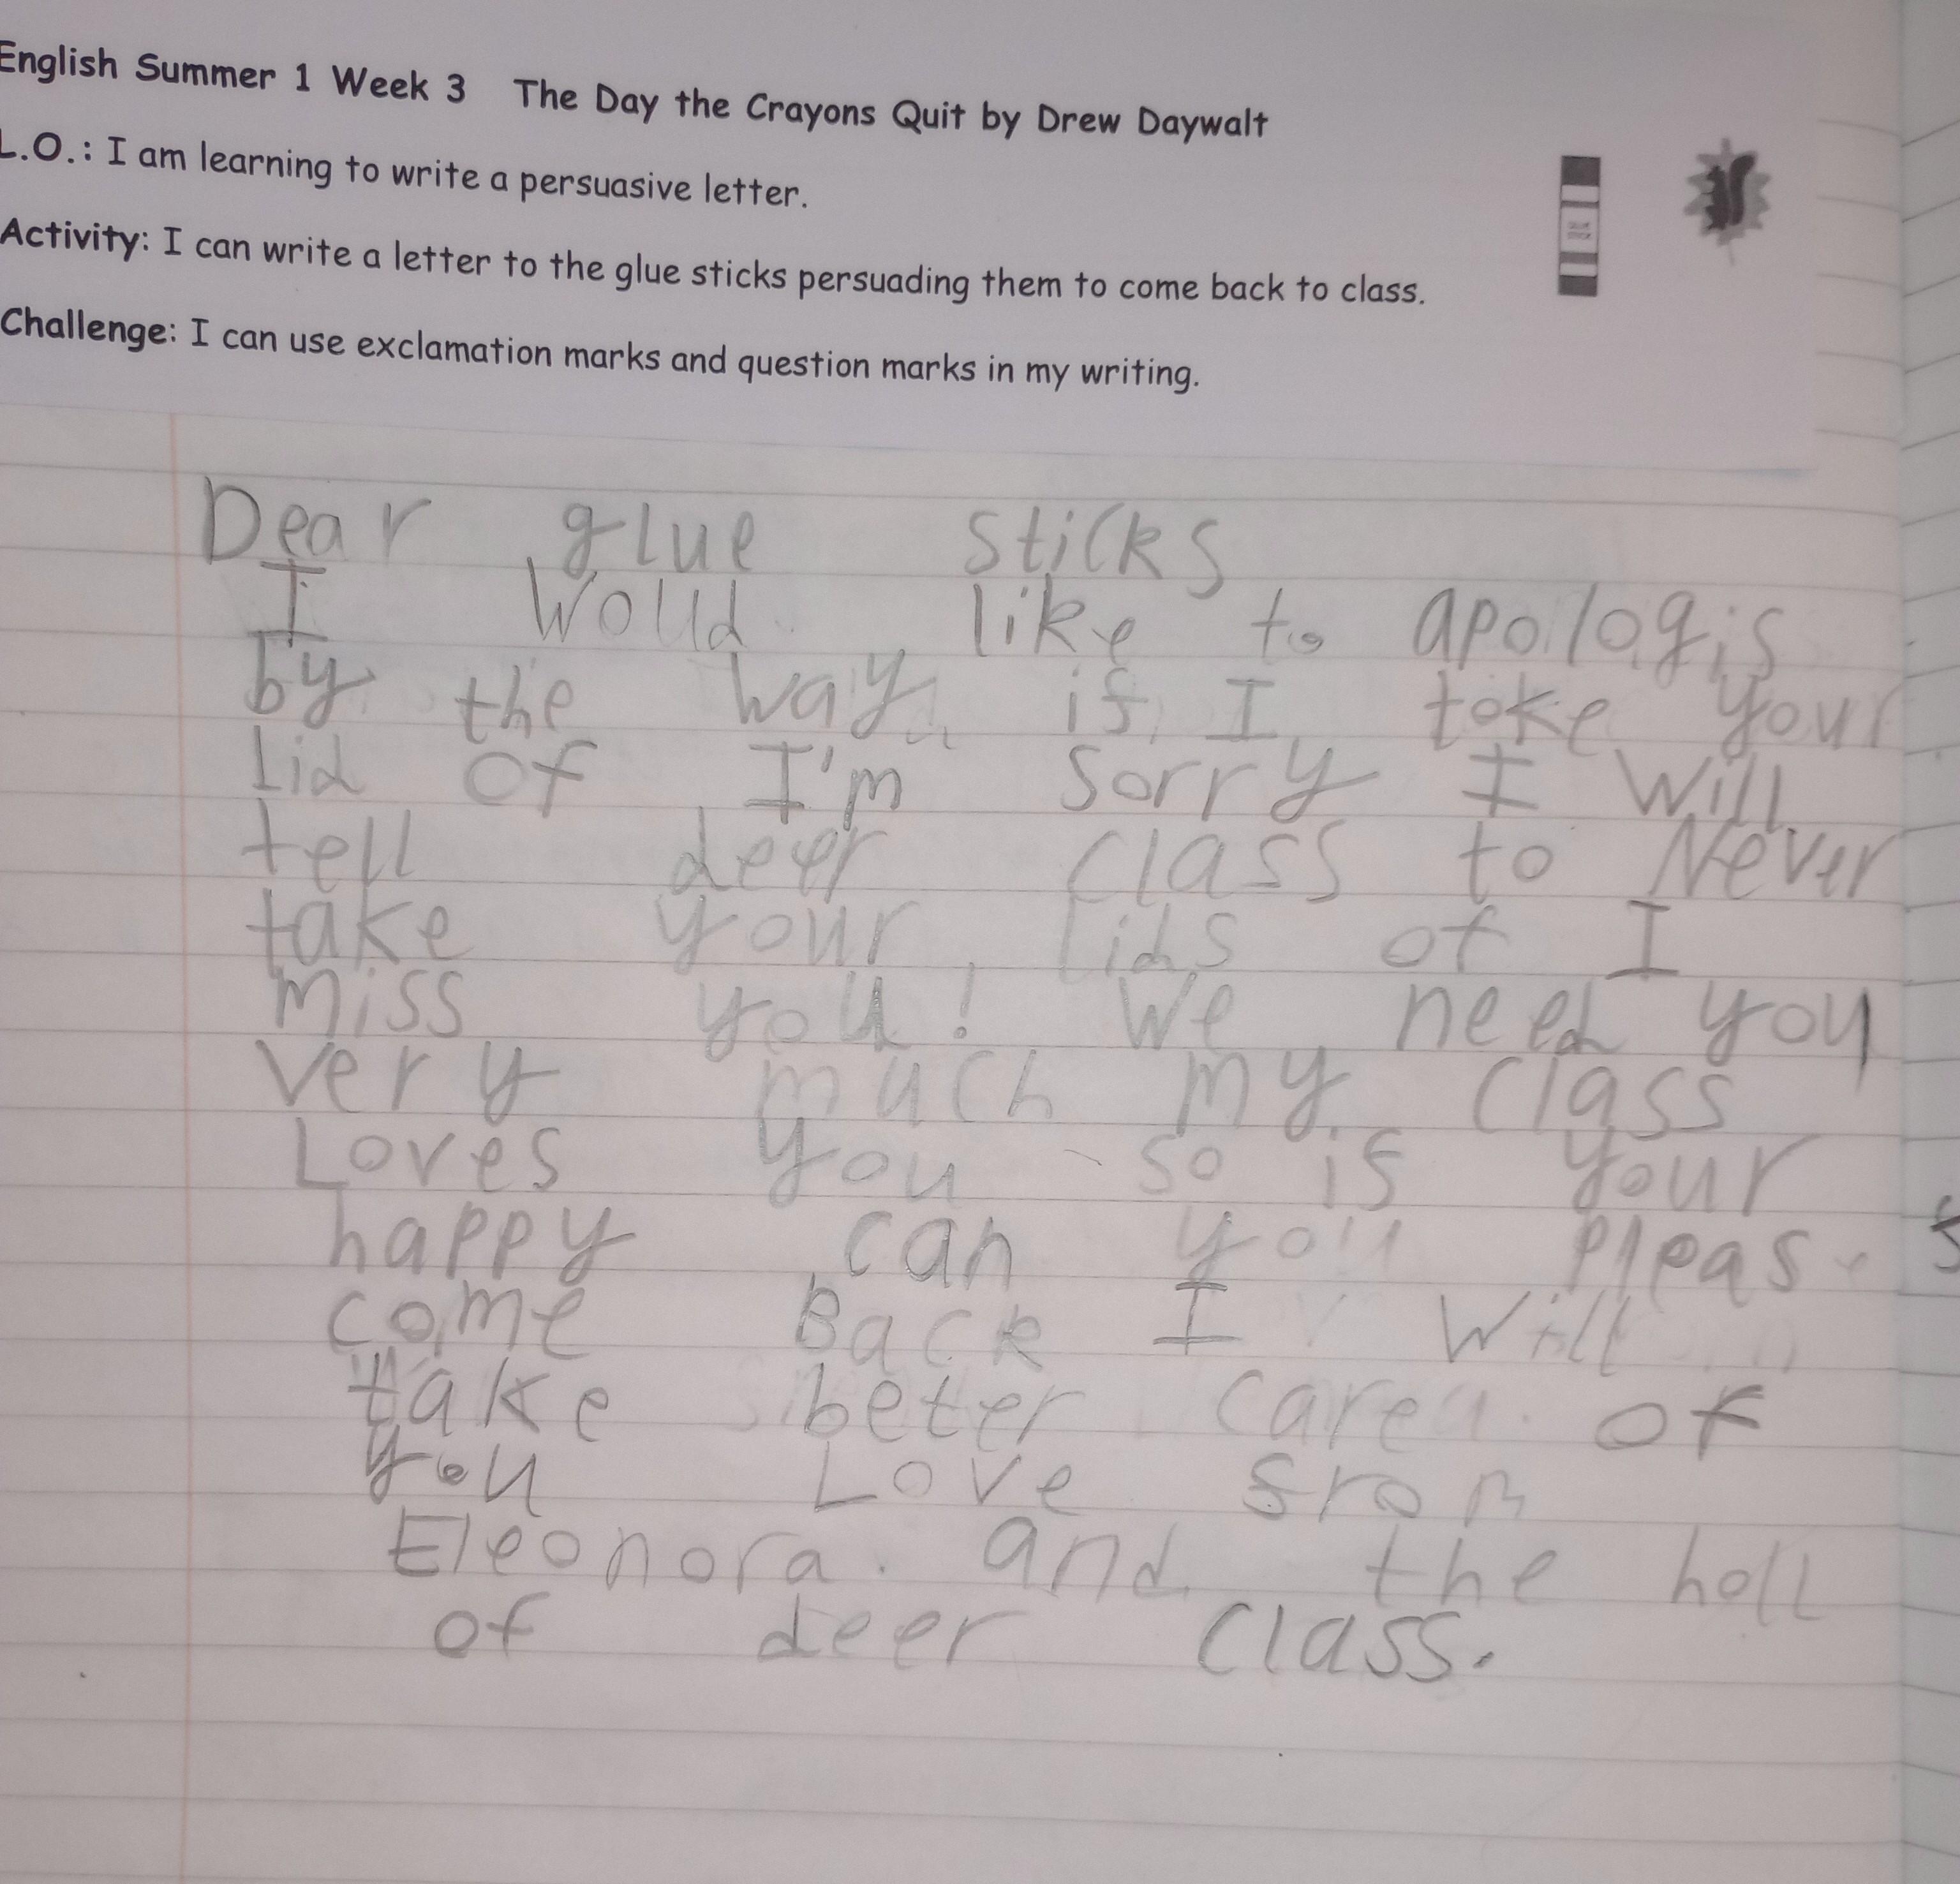 English Summer 1 Week 3 The Day the Crayons Quit by Drew Daywalt
L.O.: I am learning to write a persuasive letter.
Activity: I can write a letter to the glue sticks persuading them to come back to class.
Challenge: I can use exclamation marks and question marks in my writing.
Dear glue sticks
I Would like to apologis
by the way if I take your
lid of I'm sorry I Will
tell deer class to Never
take your lids of I
miss you! We need you
very much my class
Loves you so if your
happy can you pleas
come Back I Will
take beter care of
you Love from
Eleonora. and the holl
of deer class.